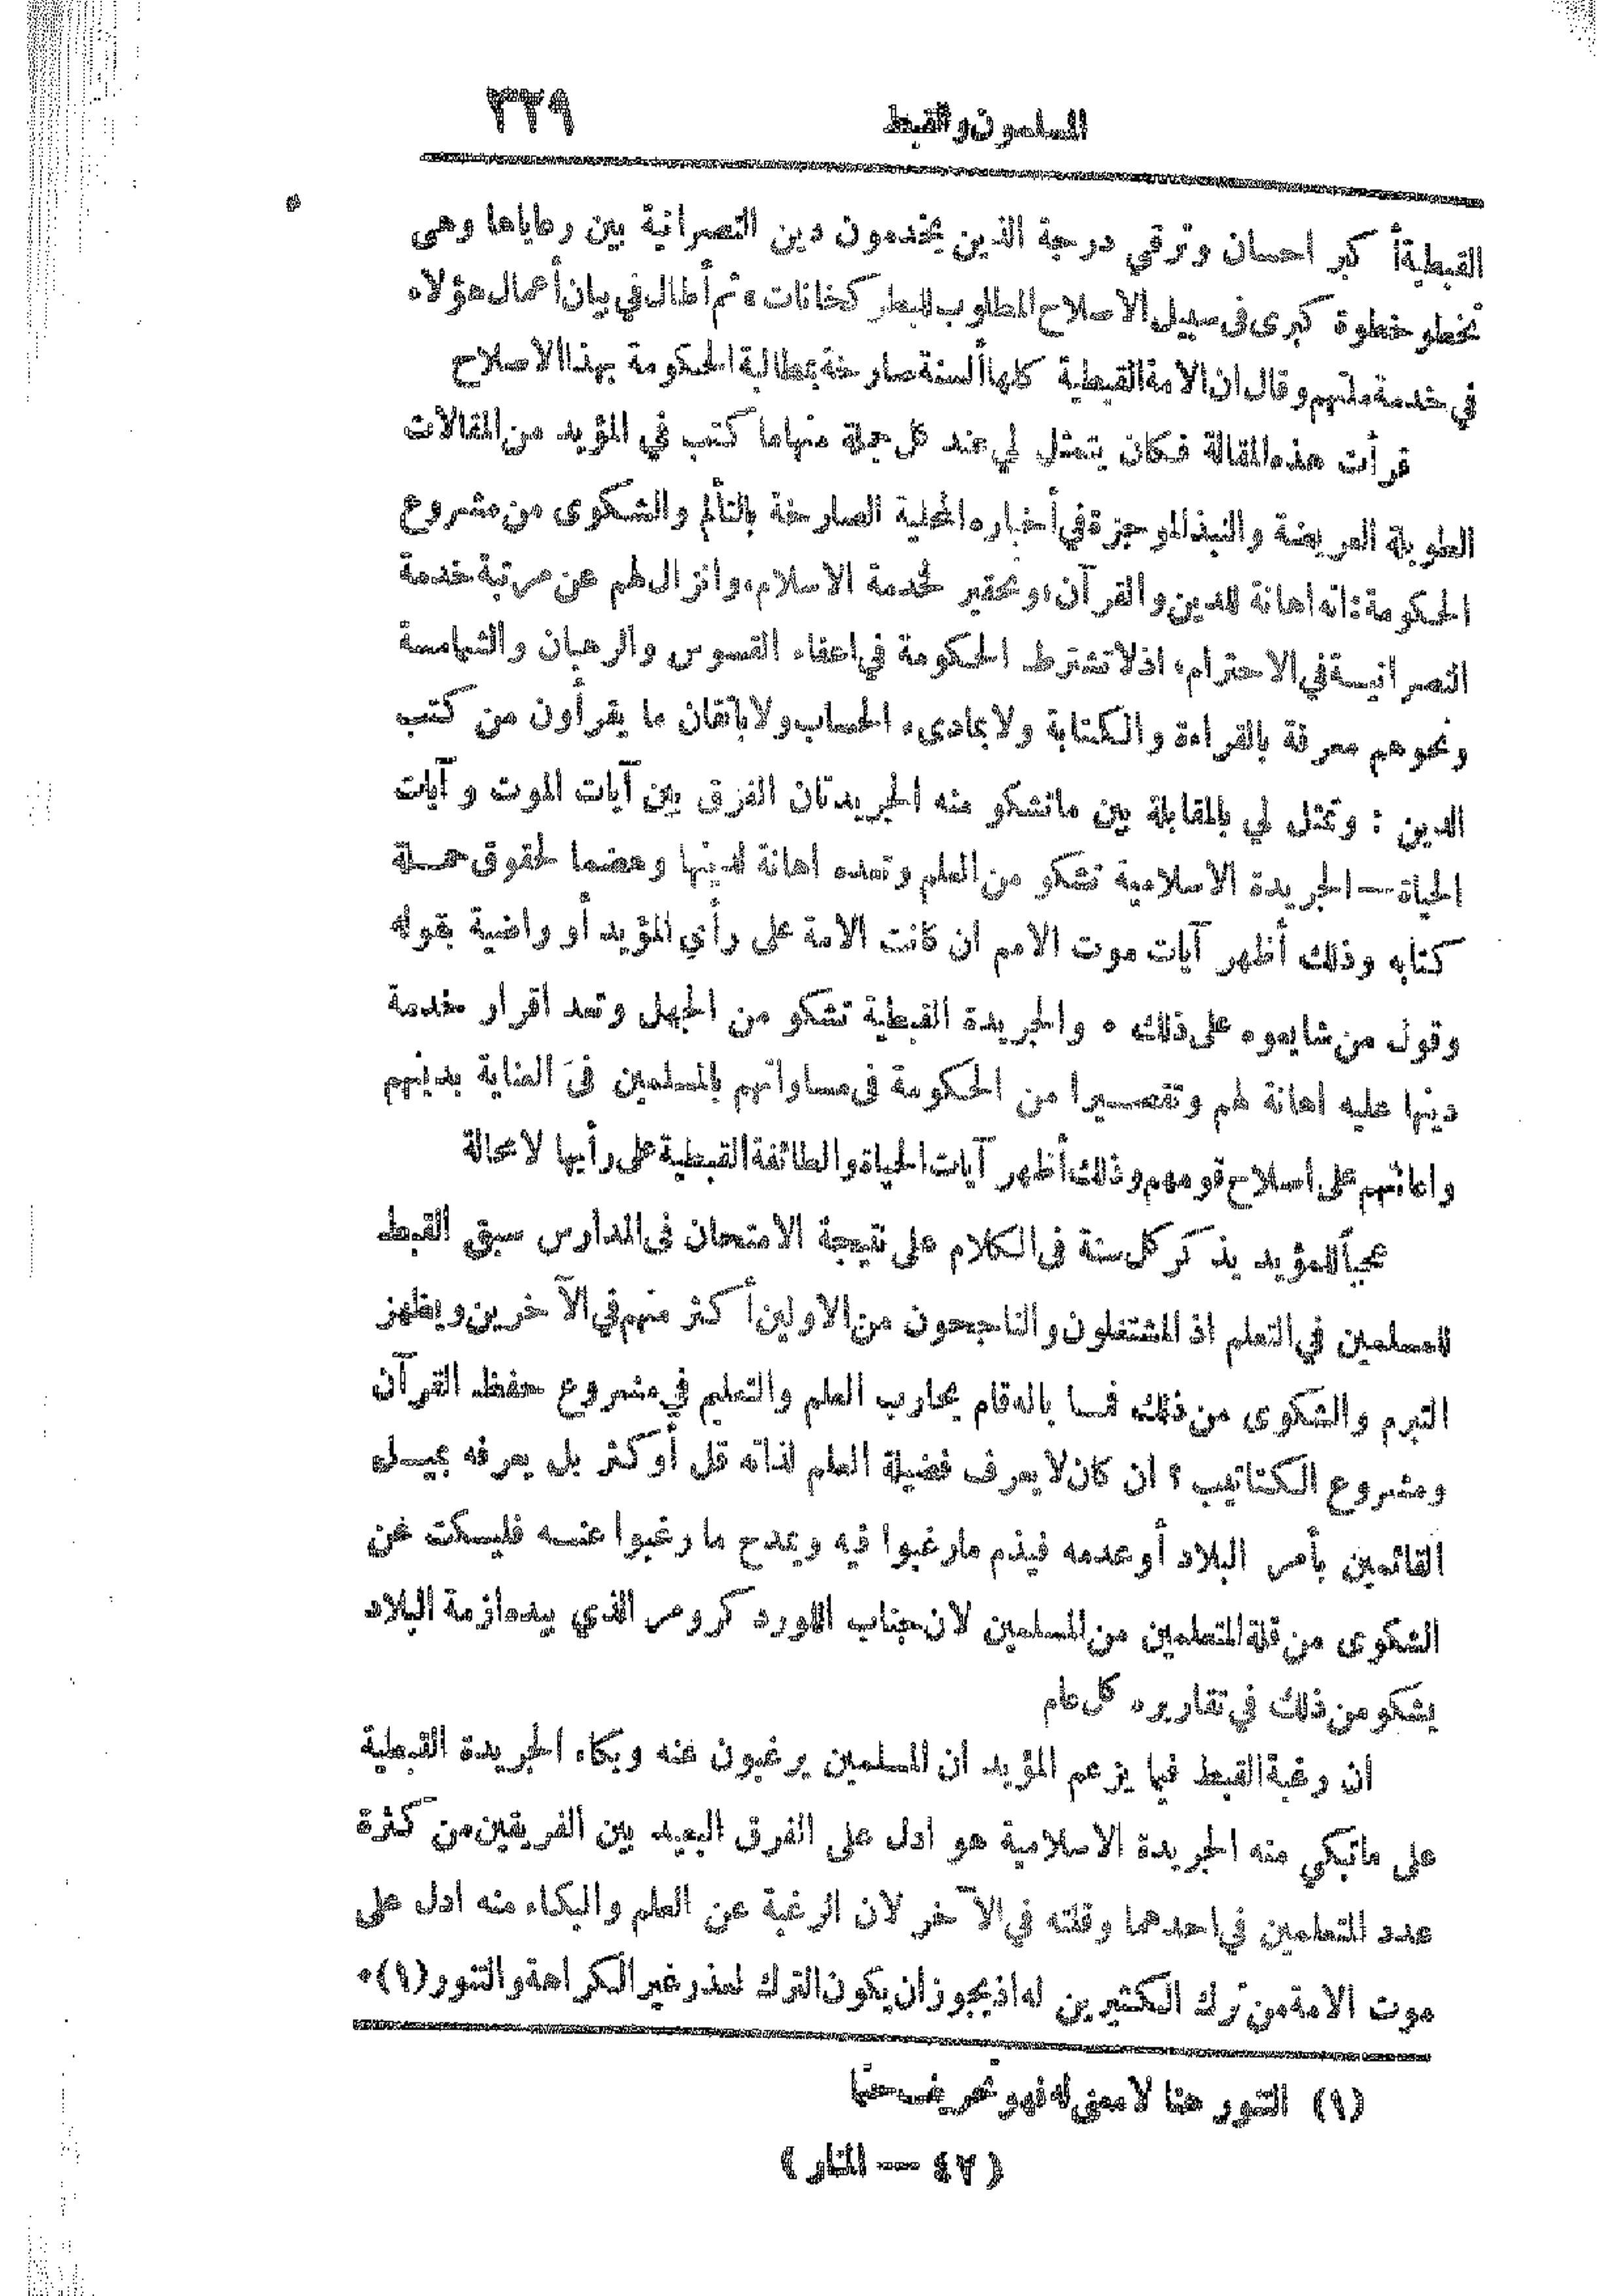 المسلمون والقبط
٣٢٩
القبطية أكبر احسان وترقي درجة الذين يخدمون دين النصرانية بين رعاياها وهى
تخطو خطوة كبرى فى سبيل الاصلاح المطلوب للبطركخانات، ثم أطال في بيان أعمال هؤلاء
في خدمة ملتهم وقال ان الامة القبطية كلها ألسنة صارخة بمطالبة الحكومة بهذا الاصلاح
قرأت هذه المقالة فكان يتمثل لي عند كل جملة منها ما كتب في المؤيد من المقالات
الطويلة العريضة والنبذ الموجزة في أخباره المحلية الصارخة بالتألم والشكوى من مشروع
الحكومة: انه اهانة للدين والقرآن، وتحقير لخدمة الاسلام، وانزال لهم عن مرتبة خدمة
النصرانية في الاحترام، اذ لا تشترط الحكومة في اعفاء القسوس والرهبان والشمامسة
ونحوهم معرفة بالقراءة والكتابة ولا بمبادىء الحساب ولا باتقان ما يقرأون من كتب
الدين: وتمثل لي بالمقابلة بين ما تشكو منه الجريدتان الفرق بين آيات الموت وآيات
الحياة — الجريدة الاسلامية تشكو من العلم وتعده اهانة لدينها وهضما لحقوق حملة
كتابه وذلك أظهر آيات موت الامم ان كانت الامة على رأي المؤيد أو راضية بقوله
وقول من شايعوه على ذلك . والجريدة القبطية تشكو من الجهل وتعد اقرار خدمة
دينها عليه اهانة لهم وتقصيرا من الحكومة فى مساواتهم بالمسلمين فى العناية بدينهم
واعانتهم على اصلاح قومهم وذلك أظهر آيات الحياة والطائفة القبطية على رأيها لا محالة
عجباً للمؤيد يذكر كل سنة فى الكلام على نتيجة الامتحان فى المدارس سبق القبط
للمسلمين في التعلم اذ المشتغلون والناجحون من الاولين أكثر منهم في الآخرين ويظهر
التبرم والشكوى من ذلك فما باله قام يحارب العلم والتعليم في مشروع حفظ القرآن
ومشروع الكتاتيب؟ ان كان لا يعرف فضيلة العلم لذاته قل أو كثر بل يعرفه بميل
القائمين بأمر البلاد أو عدمه فيذم ما رغبوا فيه ويمدح ما رغبوا عنه فليسكت عن
الشكوى من قلة المتعلمين من المسلمين لان جناب اللورد كرومر الذي بيده ازمة البلاد
يشكو من ذلك في تقاريره كل عام
ان رغبة القبط فيما يزعم المؤيد ان المسلمين يرغبون عنه وبكاء الجريدة القبطية
على ما تبكي منه الجريدة الاسلامية هو ادل على الفرق البعيد بين الفريقين من كثرة
عدد المتعلمين في احدهما وقلته في الآخر لان الرغبة عن العلم والبكاء منه ادل على
موت الامة من ترك الكثيرين له اذ يجوز أن يكون الترك لعذر غير الكراهة والتنور (١).
(١) التنور هنا لا معنى له فهو تحريف حتما
(٤٢ — المنار)